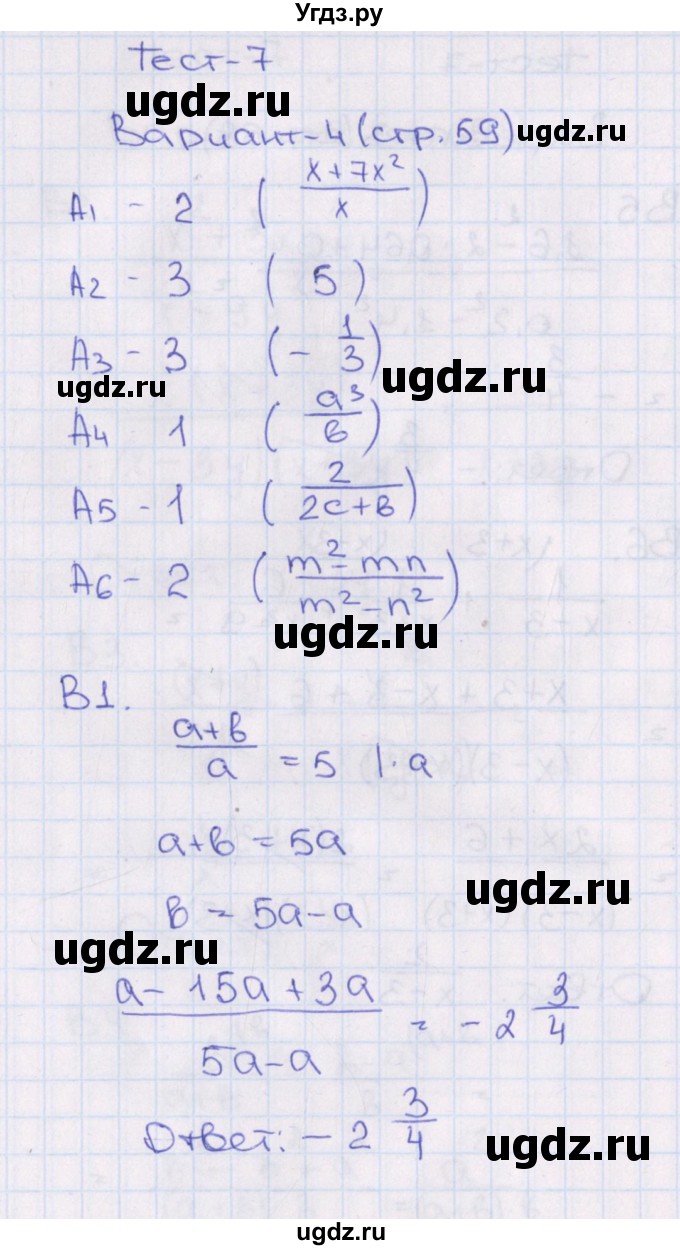 Угдз.ру
Тест-7
ugdz.ru
Вариант-4 (стр. 59) ugdz.ru
A1 - 2 ( (x+7x²)/x )
A2 - 3 ( 5 )
A3 - 3 ( - 1/3 )
ugdz.ru ugdz.ru
A4 1 ( a³/в )
A5 - 1 ( 2/(2c+в) )
A6 - 2 ( (m²-mn)/(m²-n²) )
ugdz.ru
B1.
(a+в)/a = 5 |·a
a+в = 5a
ugdz.ru
в = 5a-a
ugdz.ru
(a-15a+3a)/(5a-a) = -2 3/4
Ответ: -2 3/4
ugdz.ru
ugdz.ru